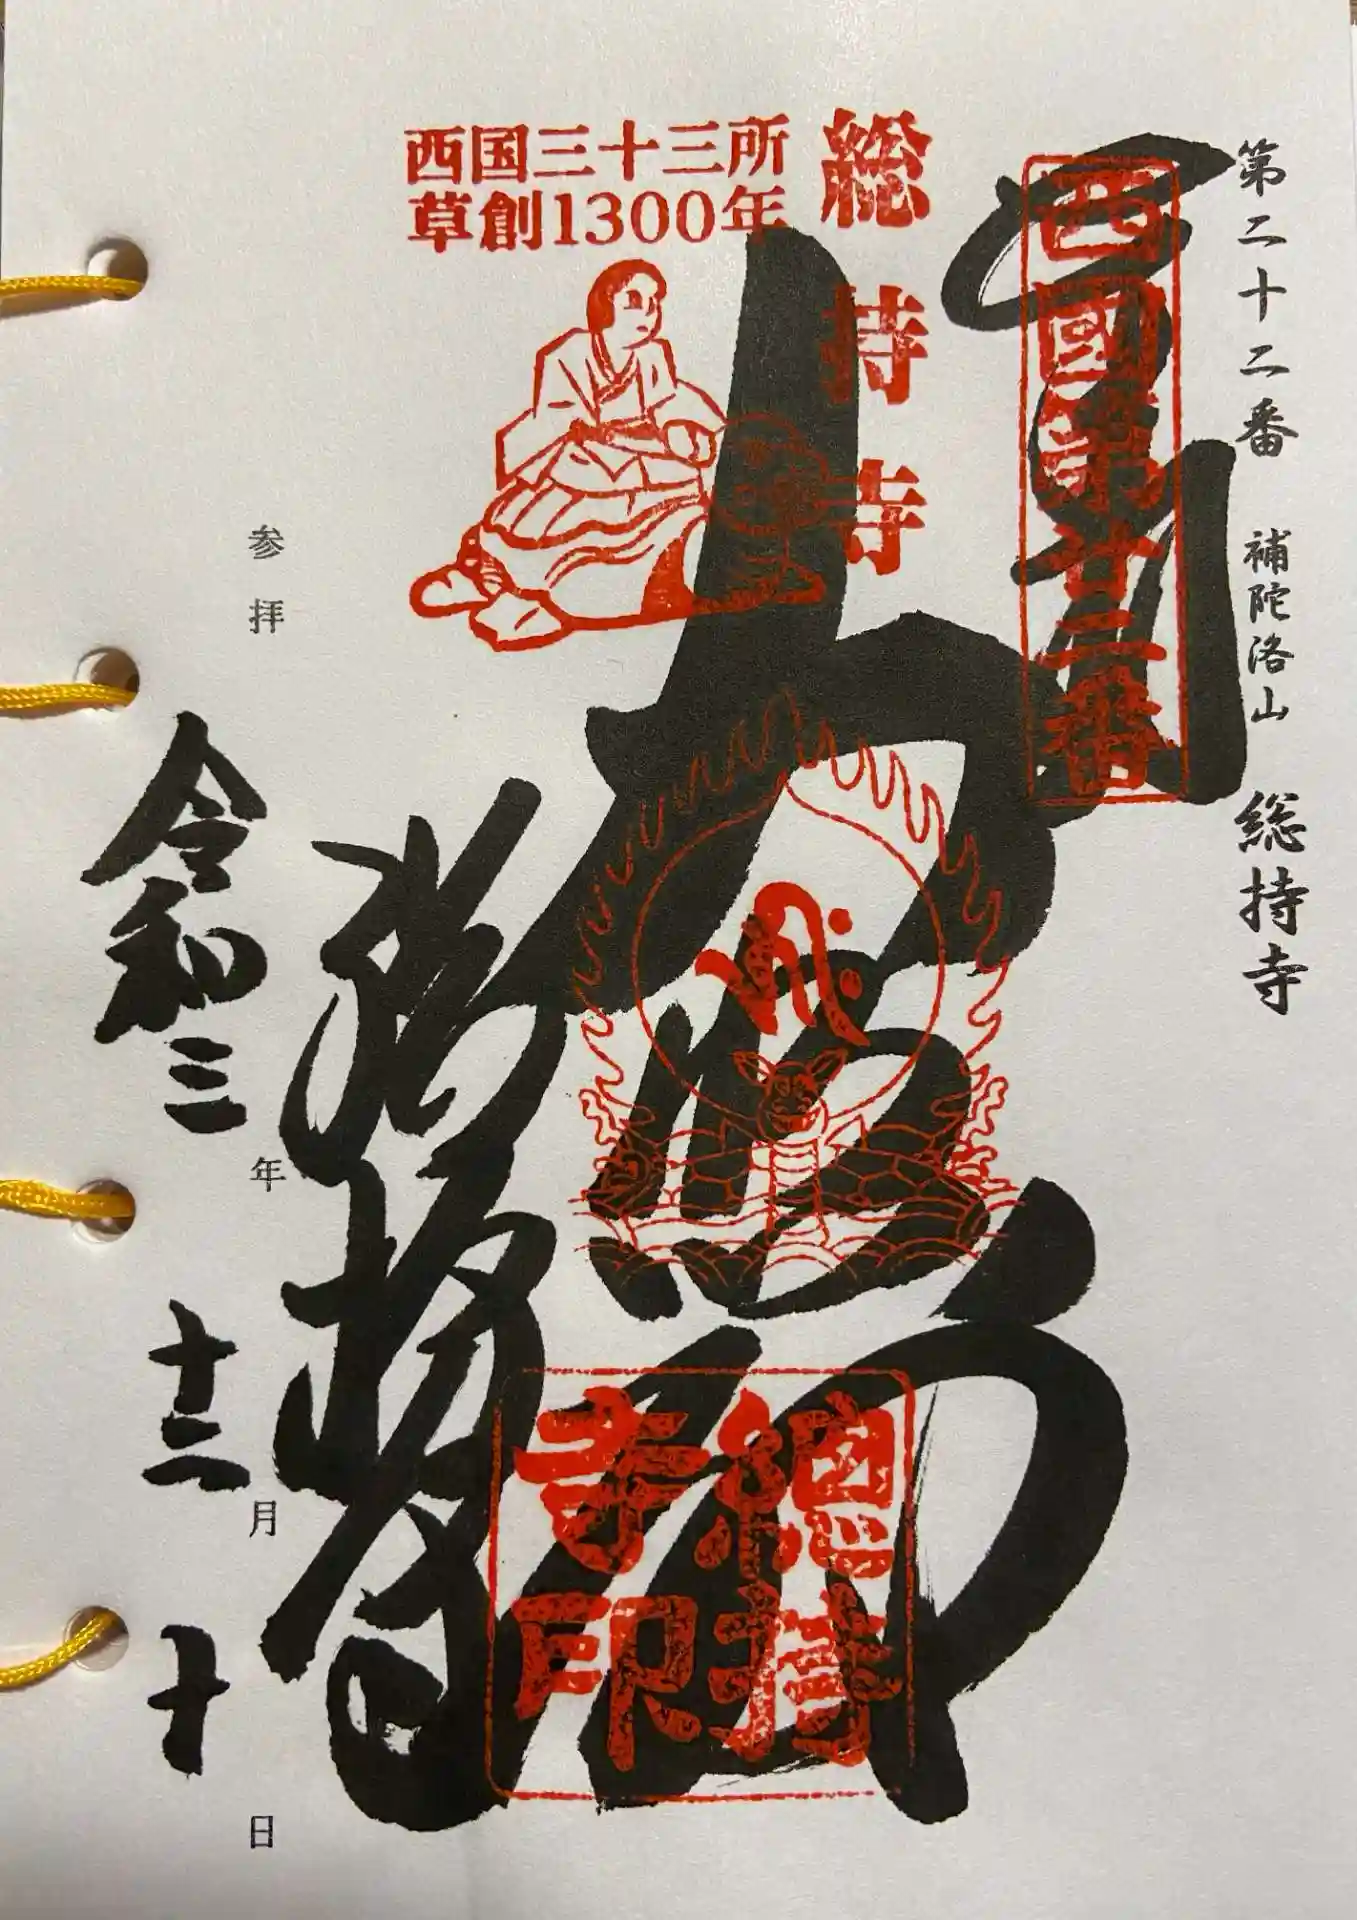 第二十二番 補陀洛山 総持寺
奉拝
西國第廿二番
総持寺
西国三十三所
草創1300年
大悲閣
總持
寺印
総持寺
参拝 年 月 日
令和三
十二
十